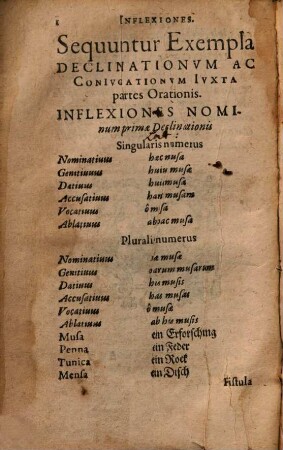 INFLEXIONES.
Sequuntur Exempla
DECLINATIONVM AC
CONIVGATIONVM IVXTA
partes Orationis.
INFLEXIONES NOMI-
num primæ Declinationis
Singularis numerus
Nominatiuus hæc musa
Genitiuus huius musæ
Datiuus huic musæ
Accusatiuus hanc musam
Vocatiuus ô musa
Ablatiuus ab hac musa
Pluralis numerus
Nominatiuus hæ musæ
Genitiuus harum musarum
Datiuus his musis
Accusatiuus has musas
Vocatiuus ô musæ
Ablatiuus ab his musis
Musa ein Erforsching
Penna ein Feder
Tunica ein Rock
Mensa ein Disch
Fistula